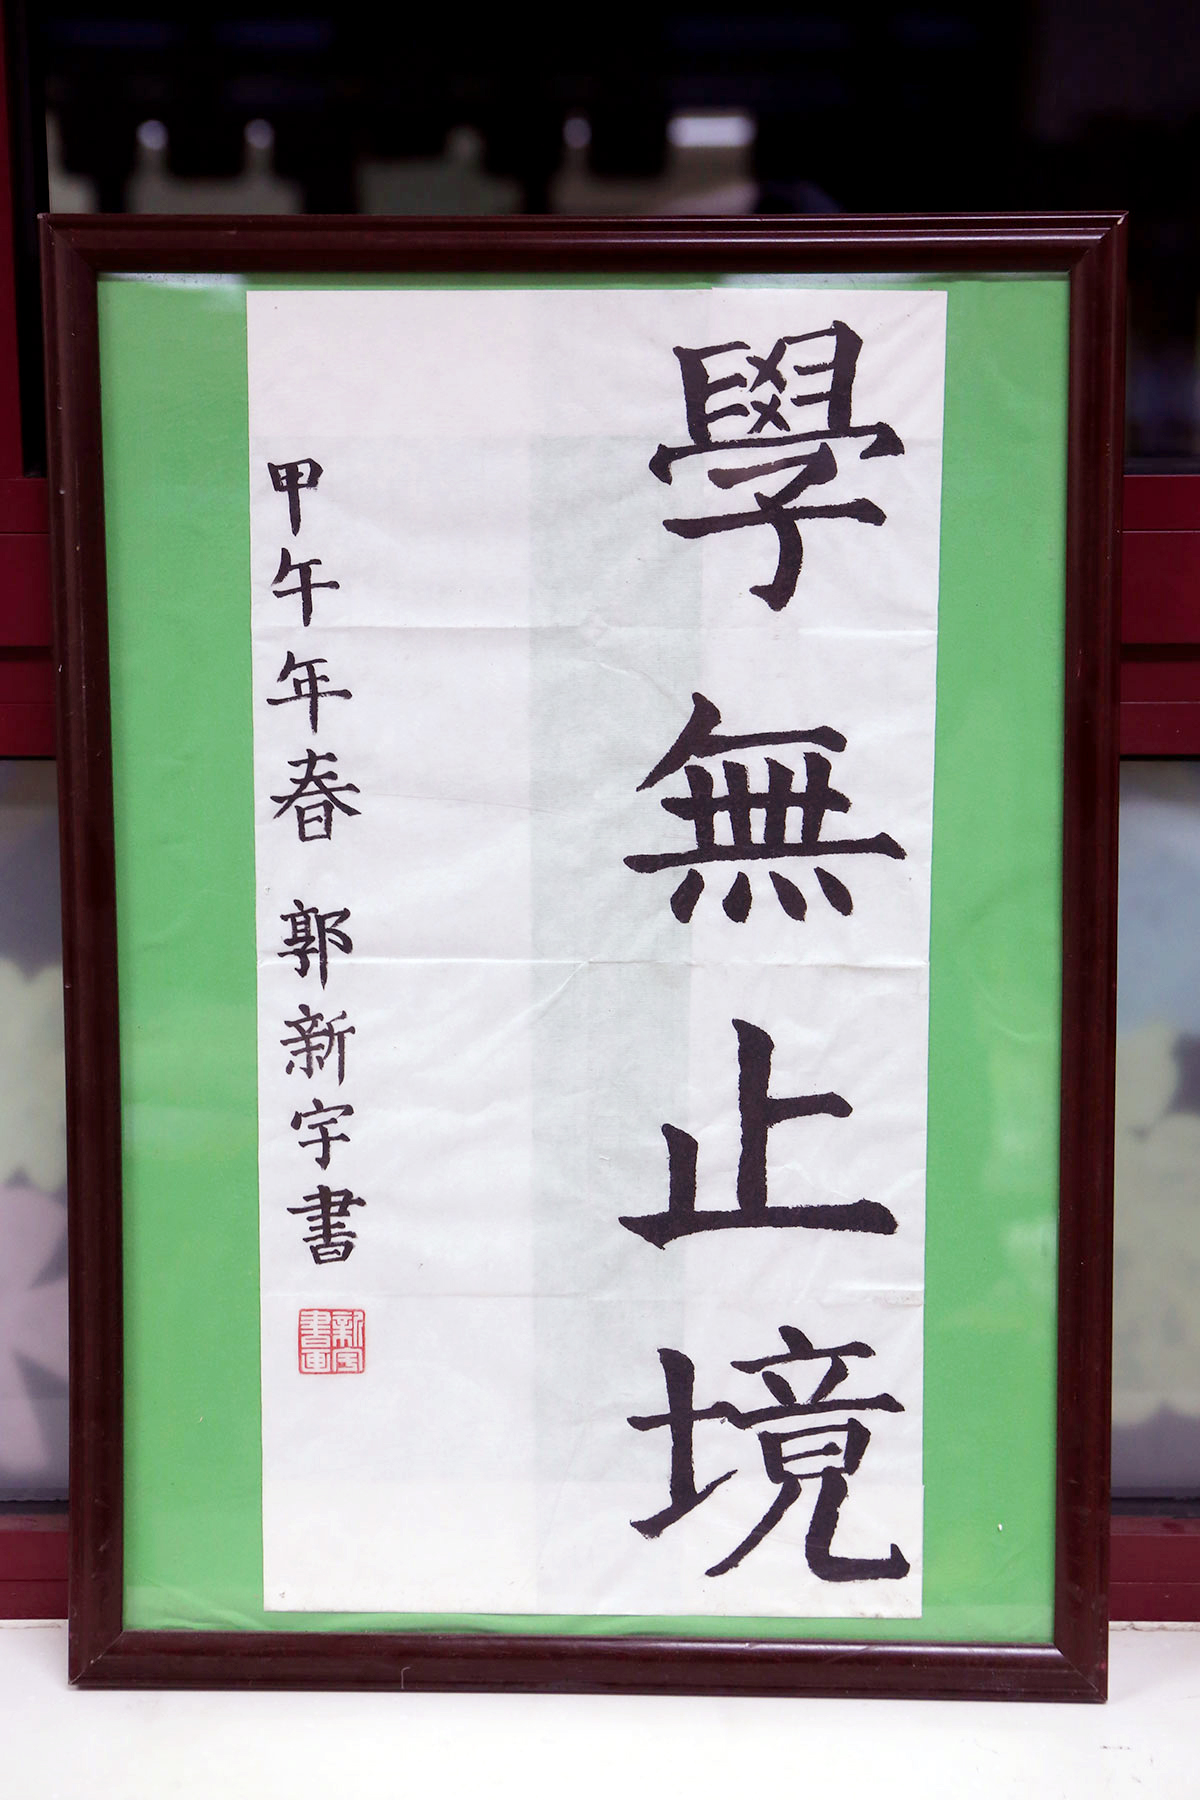 學無止境
甲午年春 郭新宇書
新宇書画